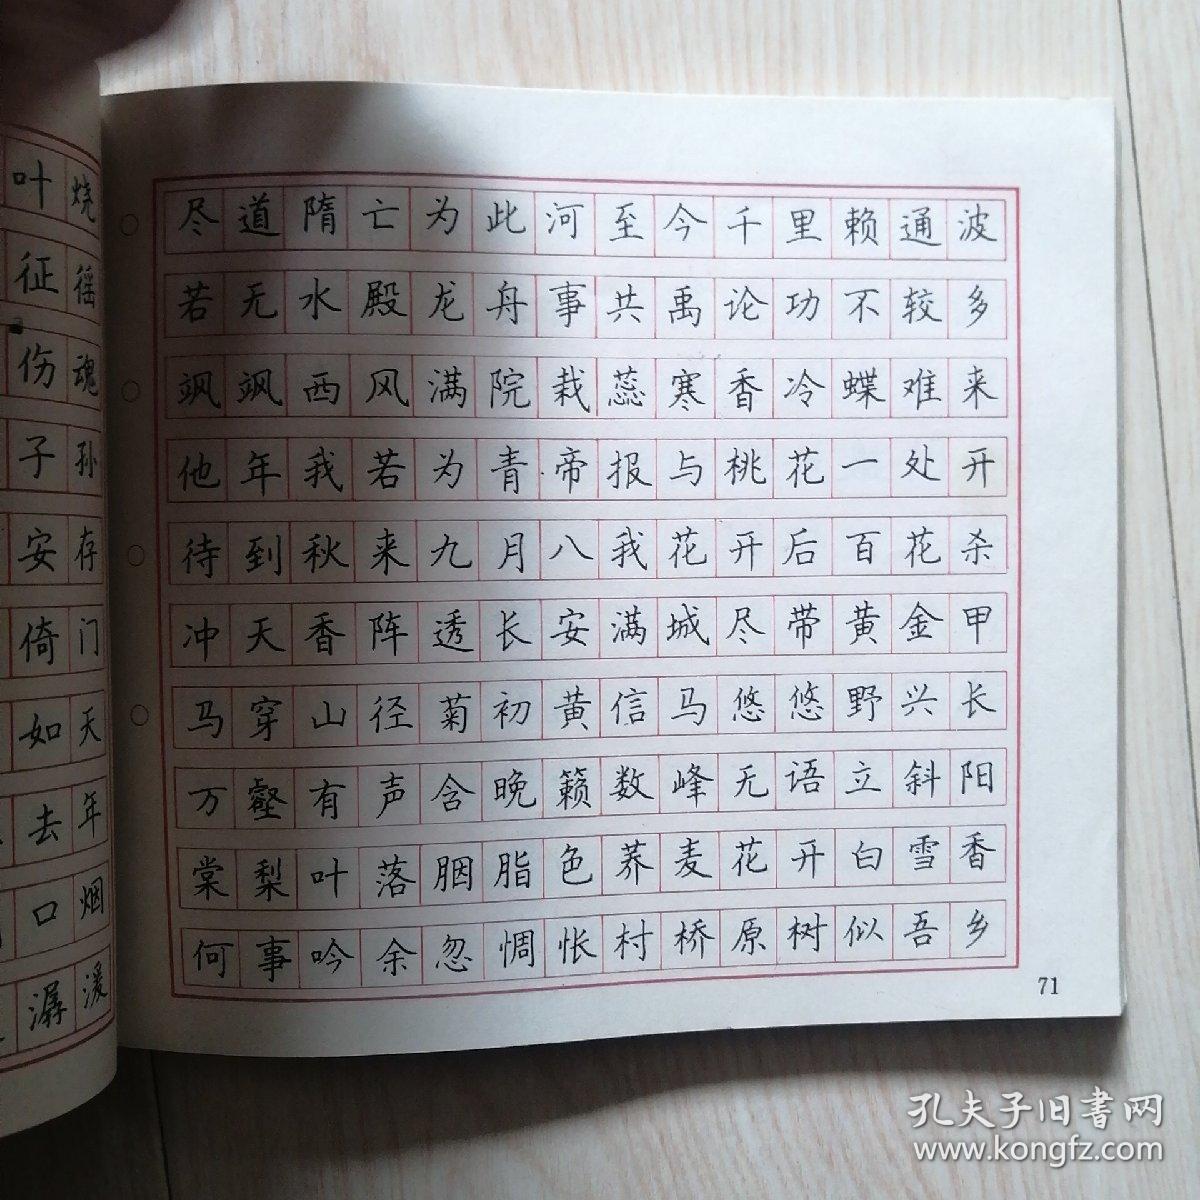 叶烧
征徭
伤魂
子孙
安存
倚门
如天
去年
口烟
潺湲
尽道隋亡为此河至今千里赖通波
若无水殿龙舟事共禹论功不较多
飒飒西风满院栽蕊寒香冷蝶难来
他年我若为青帝报与桃花一处开
待到秋来九月八我花开后百花杀
冲天香阵透长安满城尽带黄金甲
马穿山径菊初黄信马悠悠野兴长
万壑有声含晚籁数峰无语立斜阳
棠梨叶落胭脂色荞麦花开白雪香
何事吟余忽惆怅村桥原树似吾乡
71
孔夫子旧书网
www.kongfz.com